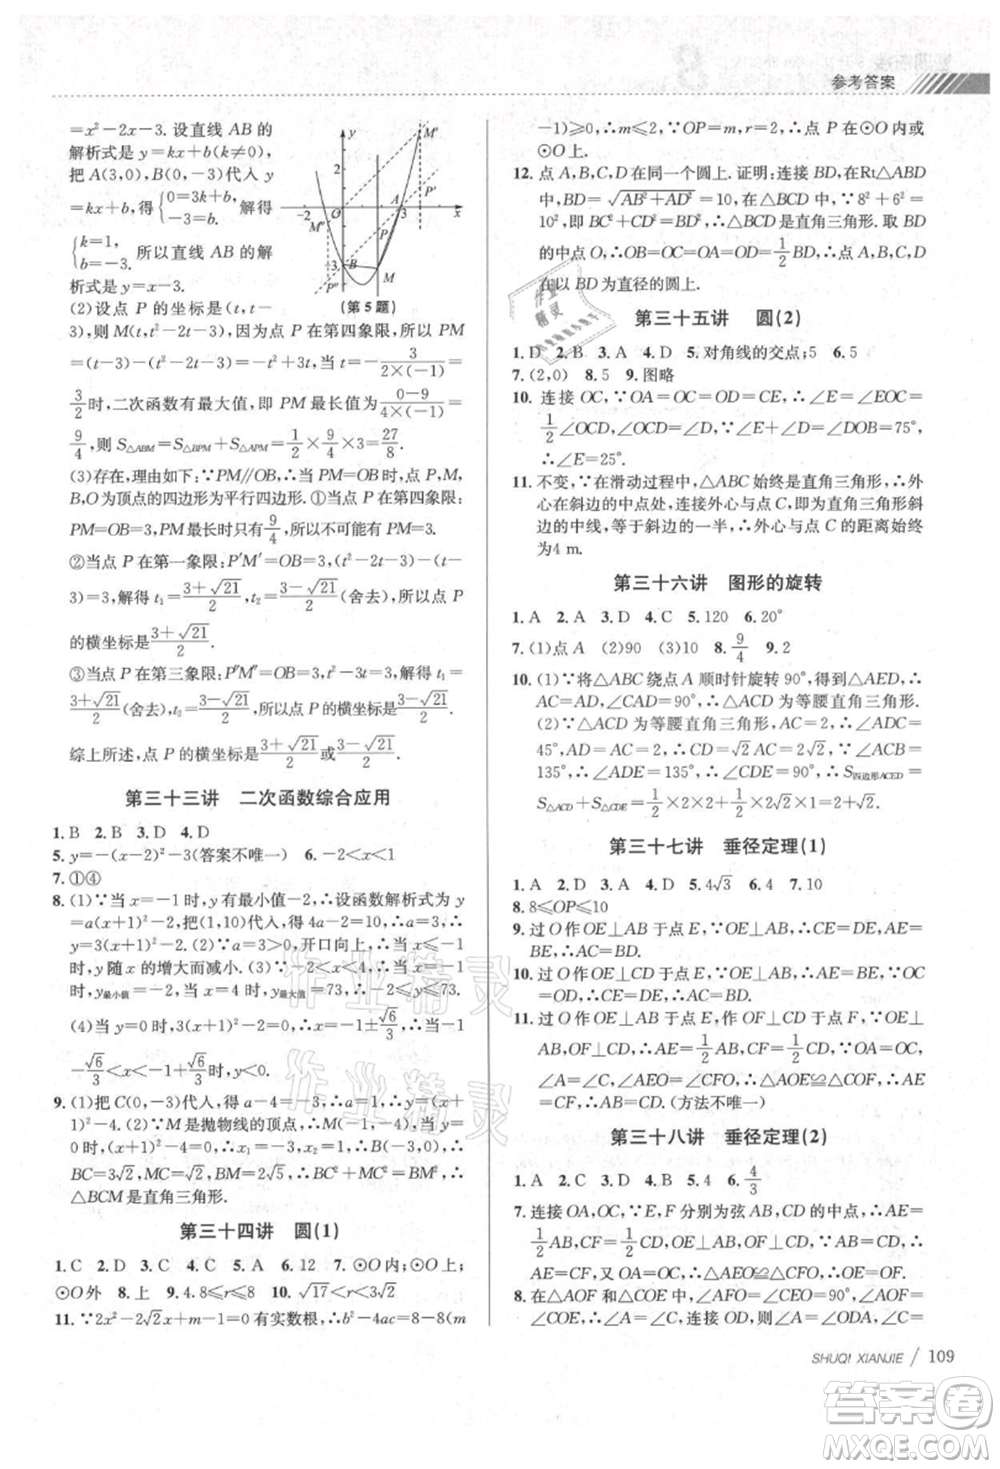 参考答案
=x²-2x-3. 设直线 AB 的
解析式是 y=kx+b(k≠0),
把 A(3,0),B(0,-3)代入
y=kx+b,得{0=3k+b, -3=b. 解得
{k=1, b=-3. 所以直线 AB 的
解析式是 y=x-3.
(第 5 题)
(2)设点 P 的坐标是(t,t-
3),则 M(t,t²-2t-3),因为点 P 在第四象限,所以 PM
=(t-3)-(t²-2t-3)=-t²+3t=-t(t-3).当 t=-3/(2×(-1))=
3/2时,二次函数有最大值,即 PM 最长值为(0-9)/(4×(-1))=
9/4,则 S△ABM=S△BPM+S△APM=1/2×9/4×3=27/8.
(3)存在,理由如下:∵PM//OB,∴当 PM=OB 时,点 P、M、
B、O 为顶点的四边形为平行四边形.①当点 P 在第四象限:
PM=OB=3,PM 最长时只有9/4,所以不可能有 PM=3.
②当点 P 在第一象限:P′M′=OB=3,(t²-2t-3)-(t-
3)=3,解得 t₁=(3+√21)/2,t₂=(3-√21)/2(舍去),所以 P 点
的横坐标是(3+√21)/2.
③当点 P 在第三象限:P″M″=OB=3,(t-3)-(t²-2t-3)=3,解得 t₁=
(3+√21)/2(舍去),t₂=(3-√21)/2,所以 P 点的横坐标是(3-√21)/2.
综上所述,点 P 的横坐标是(3+√21)/2或(3-√21)/2.
第三十三讲 二次函数综合应用
1. B 2. B 3. D 4. D
5. y=-(x-2)²-3(答案不唯一) 6. -2<x<2
7. ①④
8. (1)∵当 x=-1 时,y 有最小值0,∴设函数解析式为 y
=a(x+1)²-2,把(1,10)代入,得 4a-2=10,∴a=3,∴
y=3(x+1)²-2. (2)∵a=3>0,开口向上,∴当 x≤-1
时,y 随 x 的增大而减小. (3)当 x=-1 时,y最小值=-2,当
x=4 时,y最大值=73,∴y最小值=-2,y最大值=73,∴-2≤y≤73.
(4)当 y=0 时,3(x+1)²-2=0,∴x=-1±√6/3,∴当-1
-√6/3<x<-1+√6/3时,y<0.
9. (1)把 C(0,-3)代入,得 a-4=-3,∴a=1,∴y=(x-
1)²-4. (2)∵M 是抛物线的顶点,∴M(1,-4),∵当 y=0
时,(x-1)²-4=0,解得 x₁=3,x₂=-1,∴B(3,0),∴
BC=3√2,MC=√2,BM=2√5,∴BC²+MC²=BM²,∴
△BCM 是直角三角形.
第三十四讲 圆(1)
1. C 2. D 3. C 4. C 5. A 6. 12 7. ⊙O 内;⊙O 上;
⊙O 外 8. 4 9. 4.8≤r≤8 10. √17<r<3√2
11. ∵2x²-2√2x+m-1=0 有实数根,∴b²-4ac=8-8(m
-1)≥0,∴m≤2,∵OP=m,∴点 P 在⊙O 内或
⊙O 上.
12. 点 A,B,C,D 在同一个圆上.证明:连接 BD,在Rt△ABD
中,BD=√(AB²+AD²)=10,在△BCD 中,∵8²+6²=
10²,即 BC²+CD²=BD²,∴△BCD 是直角三角形. 取 BD
的中点 O,∴OB=OD=OA=OC=1/2BD,∴点 A,B,C,
D 在以 BD 为直径的圆上.
第三十五讲 圆(2)
1. D 2. B 3. A 4. D 5. 对角线的交点;5 6. 5
7. (2,0) 8. 5 9. 图略
10. 连接 OC,∵OA=OC=OD,∴∠E=∠EOC=
1/2∠OCD,∠OCD=∠D,∵∠E+∠D=∠AOD=75°,
∴∠E=25°.
11. 不变,∵在滑动过程中,△ABC 始终是直角三角形,∴外
心在斜边的中点处,连接外心与点 C,∵点 C 与外心的连线是斜
边的中线,等于斜边的一半,∴外心与点 C 的距离始终
为4 m.
第三十六讲 图形的旋转
1. A 2. A 3. D 4. C 5. 120 6. 20°
7. (1)点 A (2)90 (3)10 8. 9/4 9. 2
10. (1)∵将△ABC 绕点 A 顺时针旋转 90°,得到△AED,∴
AC=AD,∠CAD=90°,∴△ACD 为等腰直角三角形.
(2)∵△ACD 为等腰直角三角形,AC=2,∴∠ADC=
45°,∠CAD=90°,∴CD=√2AC=2√2,∵∠ADE=
135°,∴∠ADE-∠ADC=∠CDE=90°,∴S四边形ACED
=S△ACD+S△CDE=1/2×2×2+1/2×2√2×√2=4.
第三十七讲 垂径定理(1)
1. D 2. A 3. A 4. D 5. 4√3 6. 4 7. 10
8. 8≤OP≤10
9. 过 O 作 OE⊥AB 于点 E,∵OE⊥AB,∴CE=DE,AE=
BE,∴AC=BD.
10. 过 O 作 OE⊥AB 于点 E,∵OE⊥AB,∴CE=DE,
∵OC=OD,∴CE=DE,∴AC=BD.
11. 过 O 作 OE⊥AB 于点 E,作 OF⊥CD 于点 F,∵OE⊥
AB,OF⊥CD,∴AE=1/2AB,CF=1/2CD,∵∠OAC=
∠OCA,∴∠AEO=∠CFO=90°,∴△AOE≌△COF,
∴AE=CF,∴AB=CD.(方法不唯一)
第三十八讲 垂径定理(2)
1. D 2. A 3. D 4. C 5. 4 6. 4/3
7. 连接 OA,OC,∵E,F 分别为弦 AB,CD 的中点,∴AE=
1/2AB,CF=1/2CD,OE⊥AB,OF⊥CD,∵AB=CD,∴
AE=CF,∵OA=OC,∴△AOE≌△COF,∴OE=OF.
8. 在△AOF 和△COE 中,∵∠AFO=∠CEO=90°,
∠AOF=∠COE,OA=OC,∴△AOF≌△COE,∴CE=
SHUQI XIANJIE / 109
作业精灵
作业精灵
作业精灵
答案圈
MXQE.COM